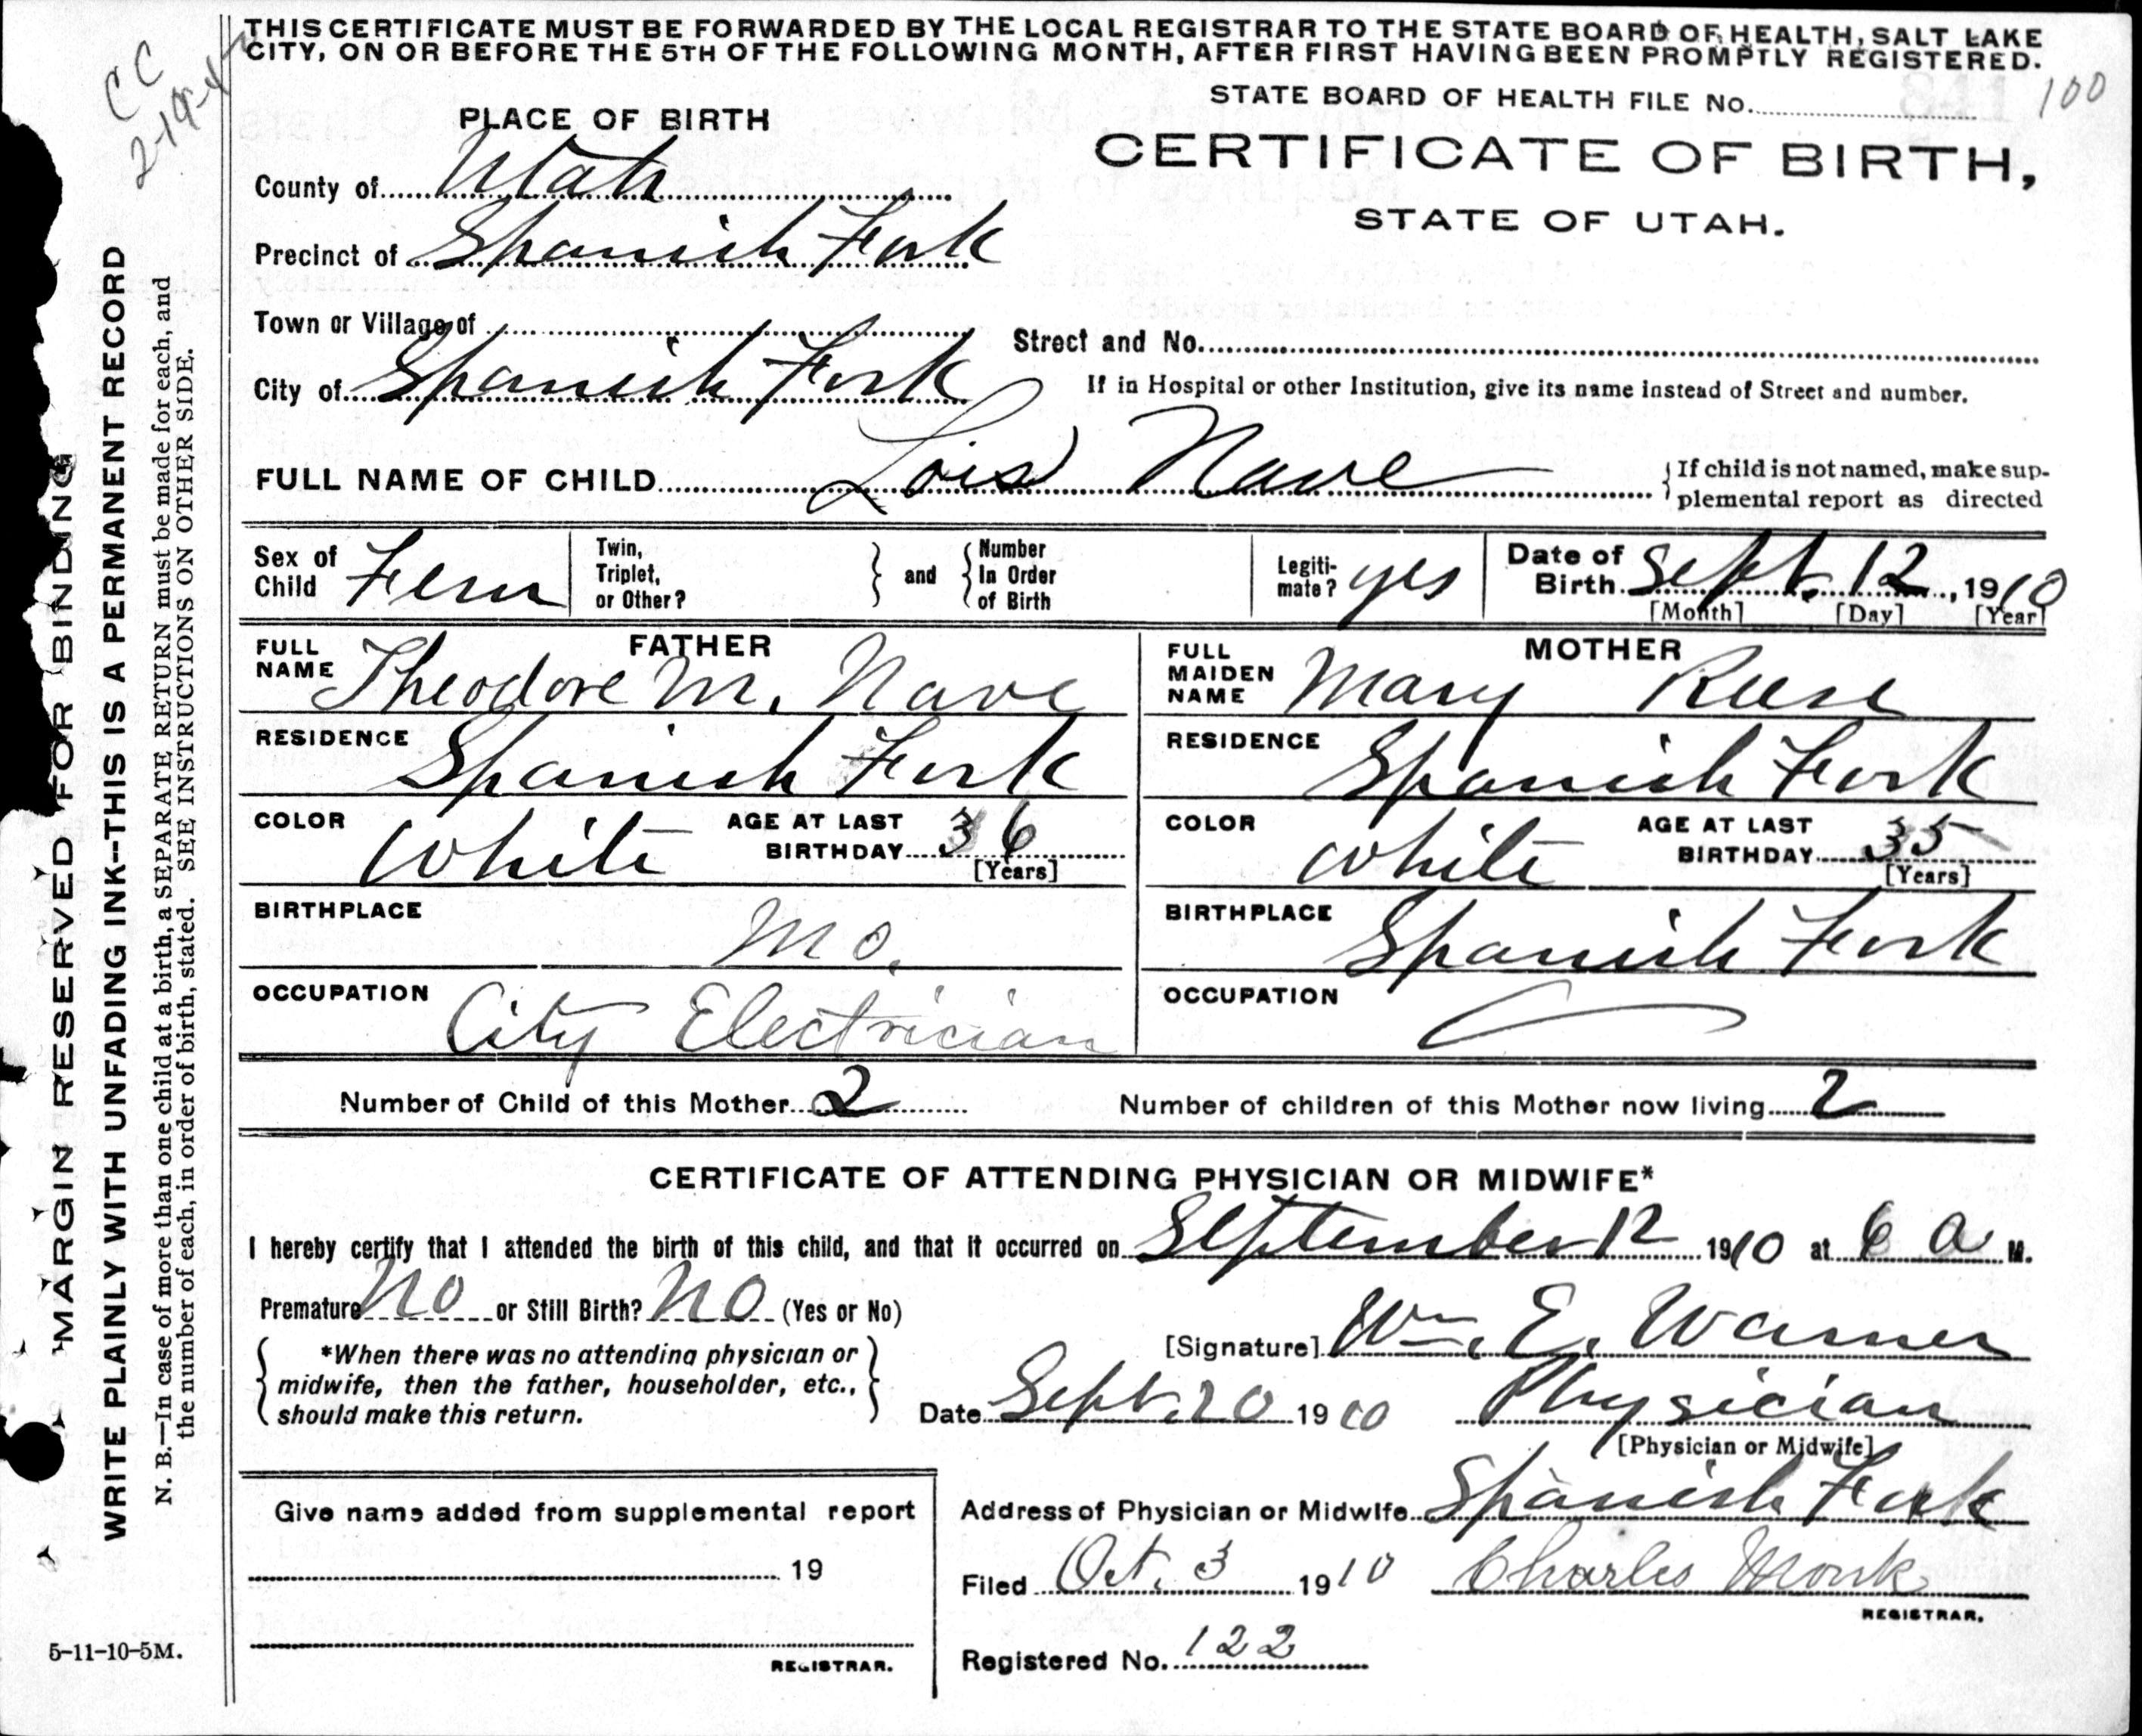 THIS CERTIFICATE MUST BE FORWARDED BY THE LOCAL REGISTRAR TO THE STATE BOARD OF HEALTH, SALT LAKE
CITY, ON OR BEFORE THE 5TH OF THE FOLLOWING MONTH, AFTER FIRST HAVING BEEN PROMPTLY REGISTERED.
CC
STATE BOARD OF HEALTH FILE No. 100
PLACE OF BIRTH
CERTIFICATE OF BIRTH,
STATE OF UTAH.
County of Utah
Precinct of Spanish Fork
Town or Village of
Street and No.
City of Spanish Fork
If in Hospital or other Institution, give its name instead of Street and number.
FULL NAME OF CHILD Lois Nave
{If child is not named, make sup-
plemental report as directed
Sex of Child Fem
Twin, Triplet, or Other?
and
Number In Order of Birth
Legiti-mate? yes
Date of Birth Sept. 12, 1910
[Month] [Day] [Year]
FATHER
FULL NAME Theodore M. Nave
RESIDENCE Spanish Fork
COLOR White
AGE AT LAST BIRTHDAY 36
[Years]
BIRTHPLACE Mo.
OCCUPATION City Electrician
MOTHER
FULL MAIDEN NAME Mary Reese
RESIDENCE Spanish Fork
COLOR White
AGE AT LAST BIRTHDAY 35
[Years]
BIRTHPLACE Spanish Fork
OCCUPATION
Number of Child of this Mother 2
Number of children of this Mother now living 2
CERTIFICATE OF ATTENDING PHYSICIAN OR MIDWIFE*
I hereby certify that I attended the birth of this child, and that it occurred on September 12 1910 at 6 a M.
Premature No or Still Birth? No (Yes or No)
[Signature] Wm. E. Warner
*When there was no attending physician or
midwife, then the father, householder, etc.,
should make this return.
Date Sept. 20 1910 Physician
[Physician or Midwife]
Give name added from supplemental report
19
REGISTRAR.
Address of Physician or Midwife Spanish Fork
Filed Oct. 3 1910 Charles Monk
REGISTRAR.
Registered No. 122
5-11-10-5M.
MARGIN RESERVED FOR BINDING
WRITE PLAINLY WITH UNFADING INK--THIS IS A PERMANENT RECORD
N. B.—In case of more than one child at a birth, a SEPARATE RETURN must be made for each, and
the number of each, in order of birth, stated. SEE INSTRUCTIONS ON OTHER SIDE.